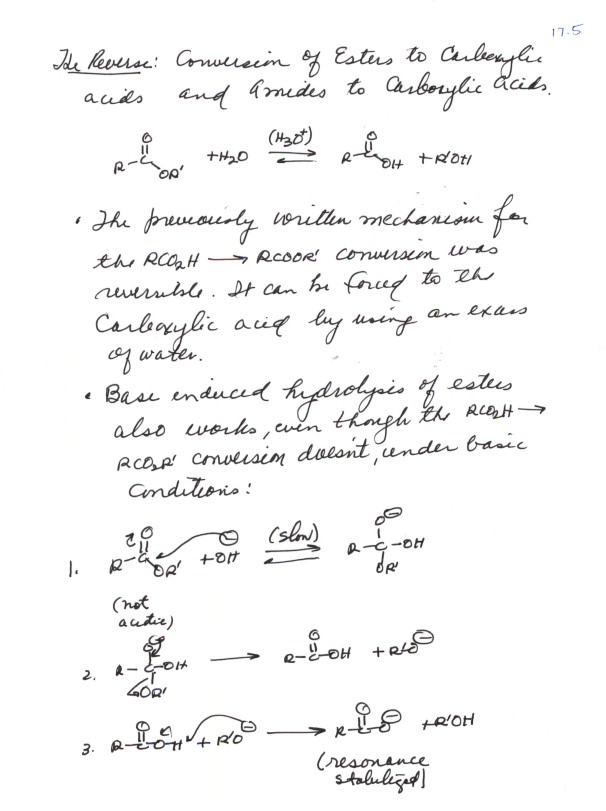 17.5
The Reverse: Conversion of Esters to Carboxylic
acids and Amides to Carboxylic Acids.
R-C(=O)-OR' + H2O (H3O+) ⇌ R-C(=O)-OH + R'OH
• The previously written mechanism for
the RCO2H → RCOOR' conversion was
reversible. It can be forced to the
Carboxylic acid by using an excess
of water.
• Base induced hydrolysis of esters
also works, even though the RCO2H →
RCO2R' conversion doesn't, under basic
Conditions:
1. R-C(=O)-OR' + ⊖OH (slow) ⇌ R-C(O⊖)(OR')-OH
(not
acidic)
2. R-C(O⊖)(OR')-OH → R-C(=O)-OH + R'O⊖
3. R-C(=O)-OH + R'O⊖ → R-C(=O)-O⊖ + R'OH
(resonance
stabilized)